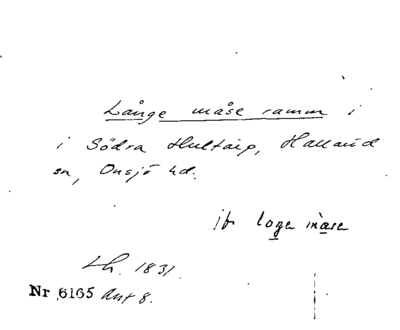 Långe måse ramm i
i Södra Hultarp, Halland
sn, Onsjö hd.
jfr loge måse
Lh. 1831.
Nr 6165 Ant 8.